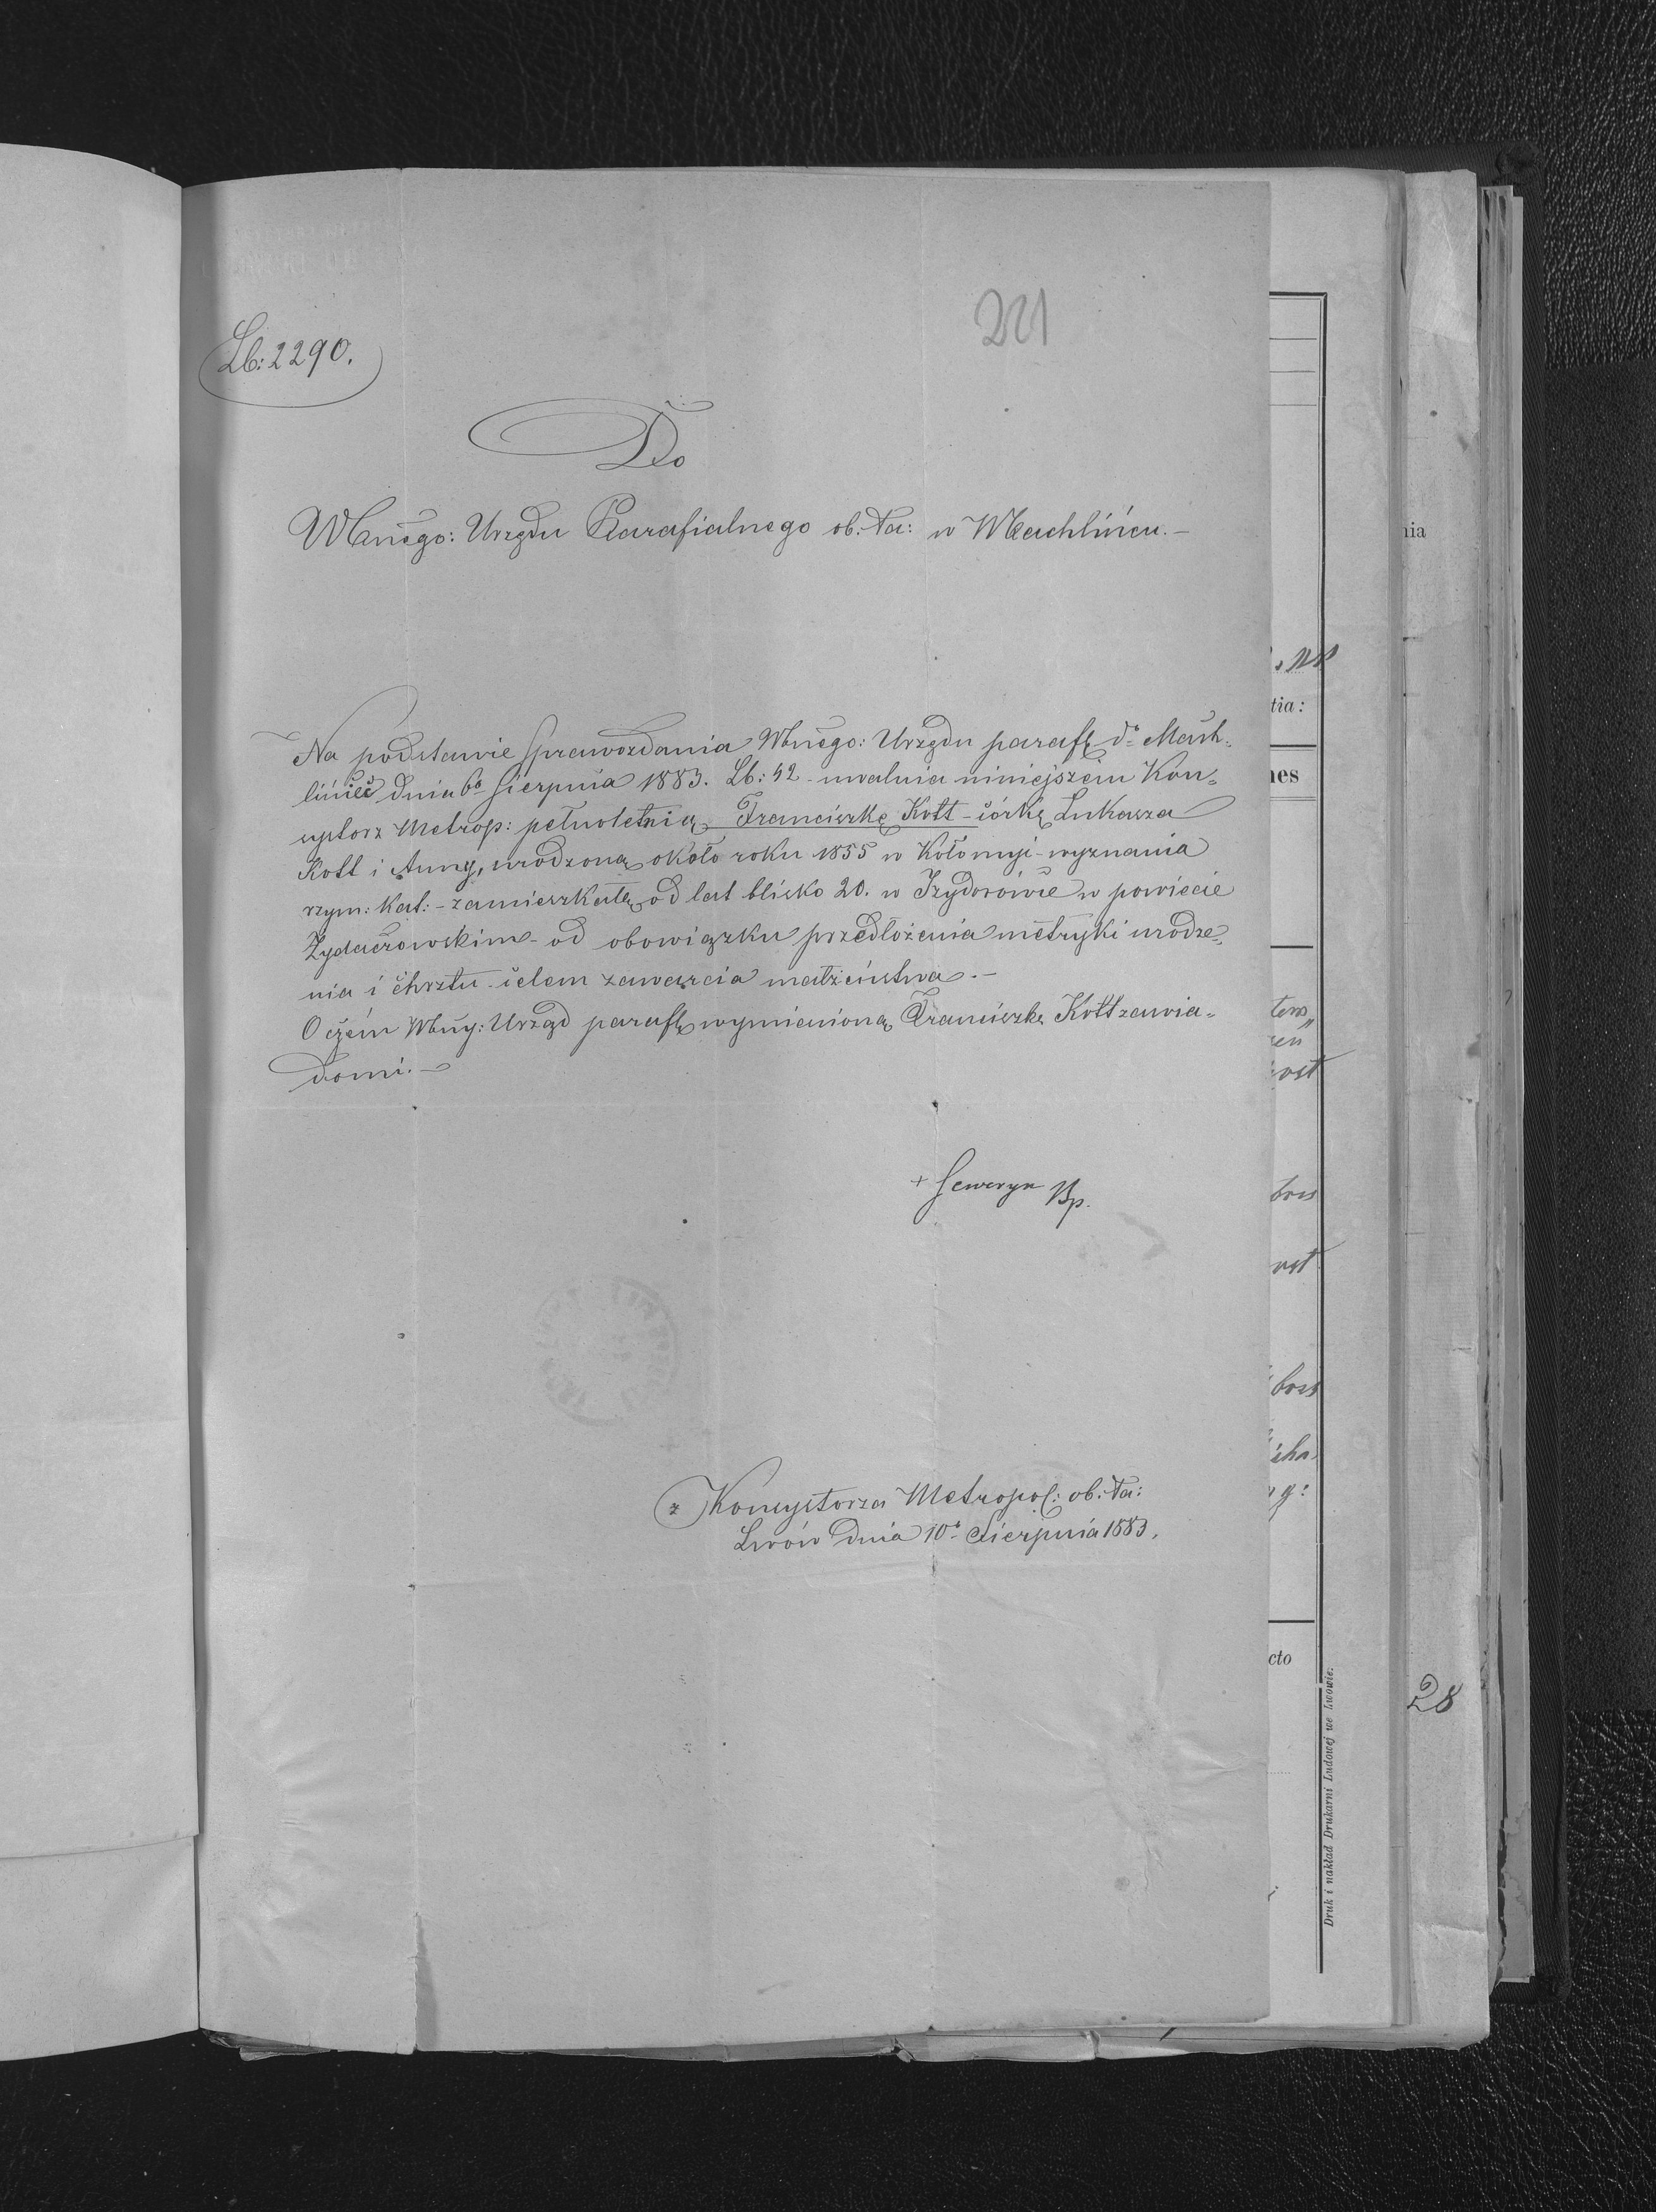 221
Lb: 2290.
Do
Wbnego: Urzędu Parafialnego ob: ła: w Machlińcu.–
Na podstawie sprawozdania Wbnego: Urzędu paraf. dto Mach-
liniec dnia 6o sierpnia 1883. Lb: 42 – uwalnia niniejszem Kon-
systorz Metrop: pełnoletnią Franciszkę Kott – córkę Łukasza
Kott i Anny, urodzoną około roku 1855 w Kołomyji – wyznania
rzym: kat: – zamieszkałą od lat blisko 20. w Izydorówce w powiecie
Żydaczowskim – od obowiązku przedłożenia metryki urodze-
nia i chrztu – celem zawarcia małżeństwa.–
O czém Wbny: Urząd paraf. wymienioną Franciszkę Kott zawia-
domi.–
+ Seweryn Bp.
z Konsystorza Metropol: ob: ła:
Lwów dnia 10o Sierpnia 1883.
nia
tia:
nes
cto
28
Druk i nakład Drukarni Ludowej we Lwowie.